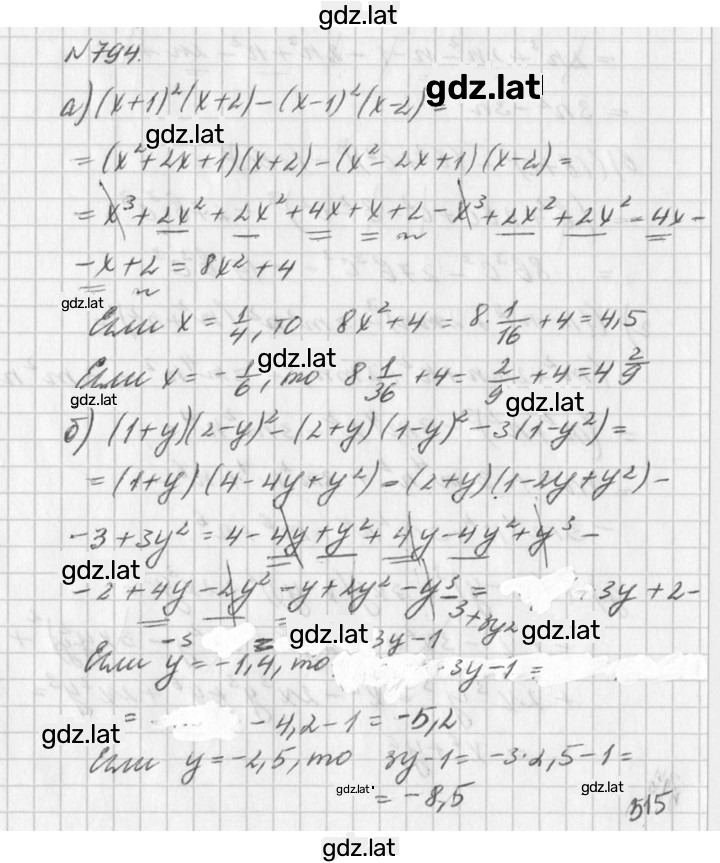 gdz.lat
№794.
а) (x+1)²(x+2)-(x-1)²(x-2) = gdz.lat
gdz.lat
= (x²+2x+1)(x+2)-(x²-2x+1)(x-2) =
= x³+2x²+2x²+4x+x+2-x³+2x²+2x²-4x-
-x+2 = 8x²+4
gdz.lat
Если x = 1/4, то 8x²+4 = 8·1/16+4 = 4,5
gdz.lat
Если x = -1/6, то 8·1/36+4 = 2/9+4 = 4 2/9
gdz.lat gdz.lat
б) (1+y)(2-y)²-(2+y)(1-y)²-3(1-y²) =
= (1+y)(4-4y+y²)-(2+y)(1-2y+y²)-
-3+3y² = 4-4y+y²+4y-4y²+y³-
gdz.lat
-2+4y-2y²-y+2y²-y³ = 3y+2-
-3+3y²
gdz.lat
-3 = gdz.lat 3y-1
Если y = -1,4, то 3y-1 =
= -4,2-1 = -5,2
gdz.lat
Если y = -2,5, то 3y-1 = -3·2,5-1 =
gdz.lat = -8,5 gdz.lat
515
gdz.lat